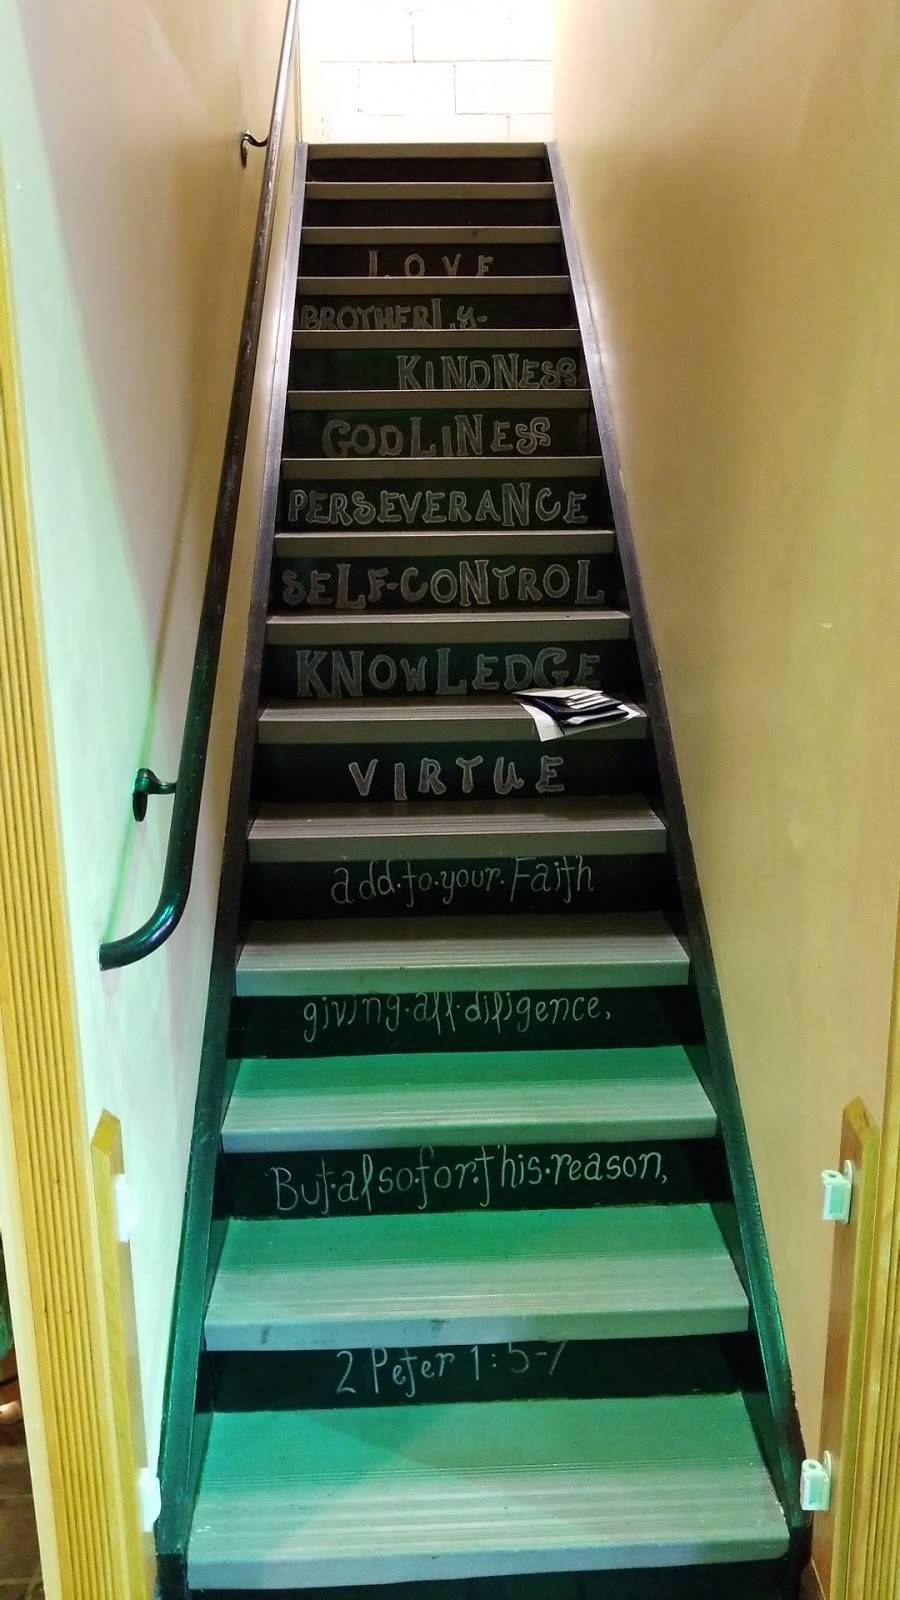 LOVE
BROTHERLY-
KINDNESS
GODLINESS
PERSEVERANCE
SELF-CONTROL
KNOWLEDGE
VIRTUE
add·to·your·Faith
giving·all·diligence,
But·also·for·this·reason,
2 Peter 1:5-7